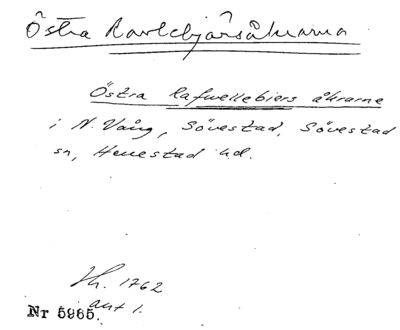 Östra Ravlebjärsåkrarna
Östra Rafwellebiers åkrarne
i N. Vång, Sövestad, Sövestad
sn, Herrestad hd.
1762
akt 1.
Nr 5965.